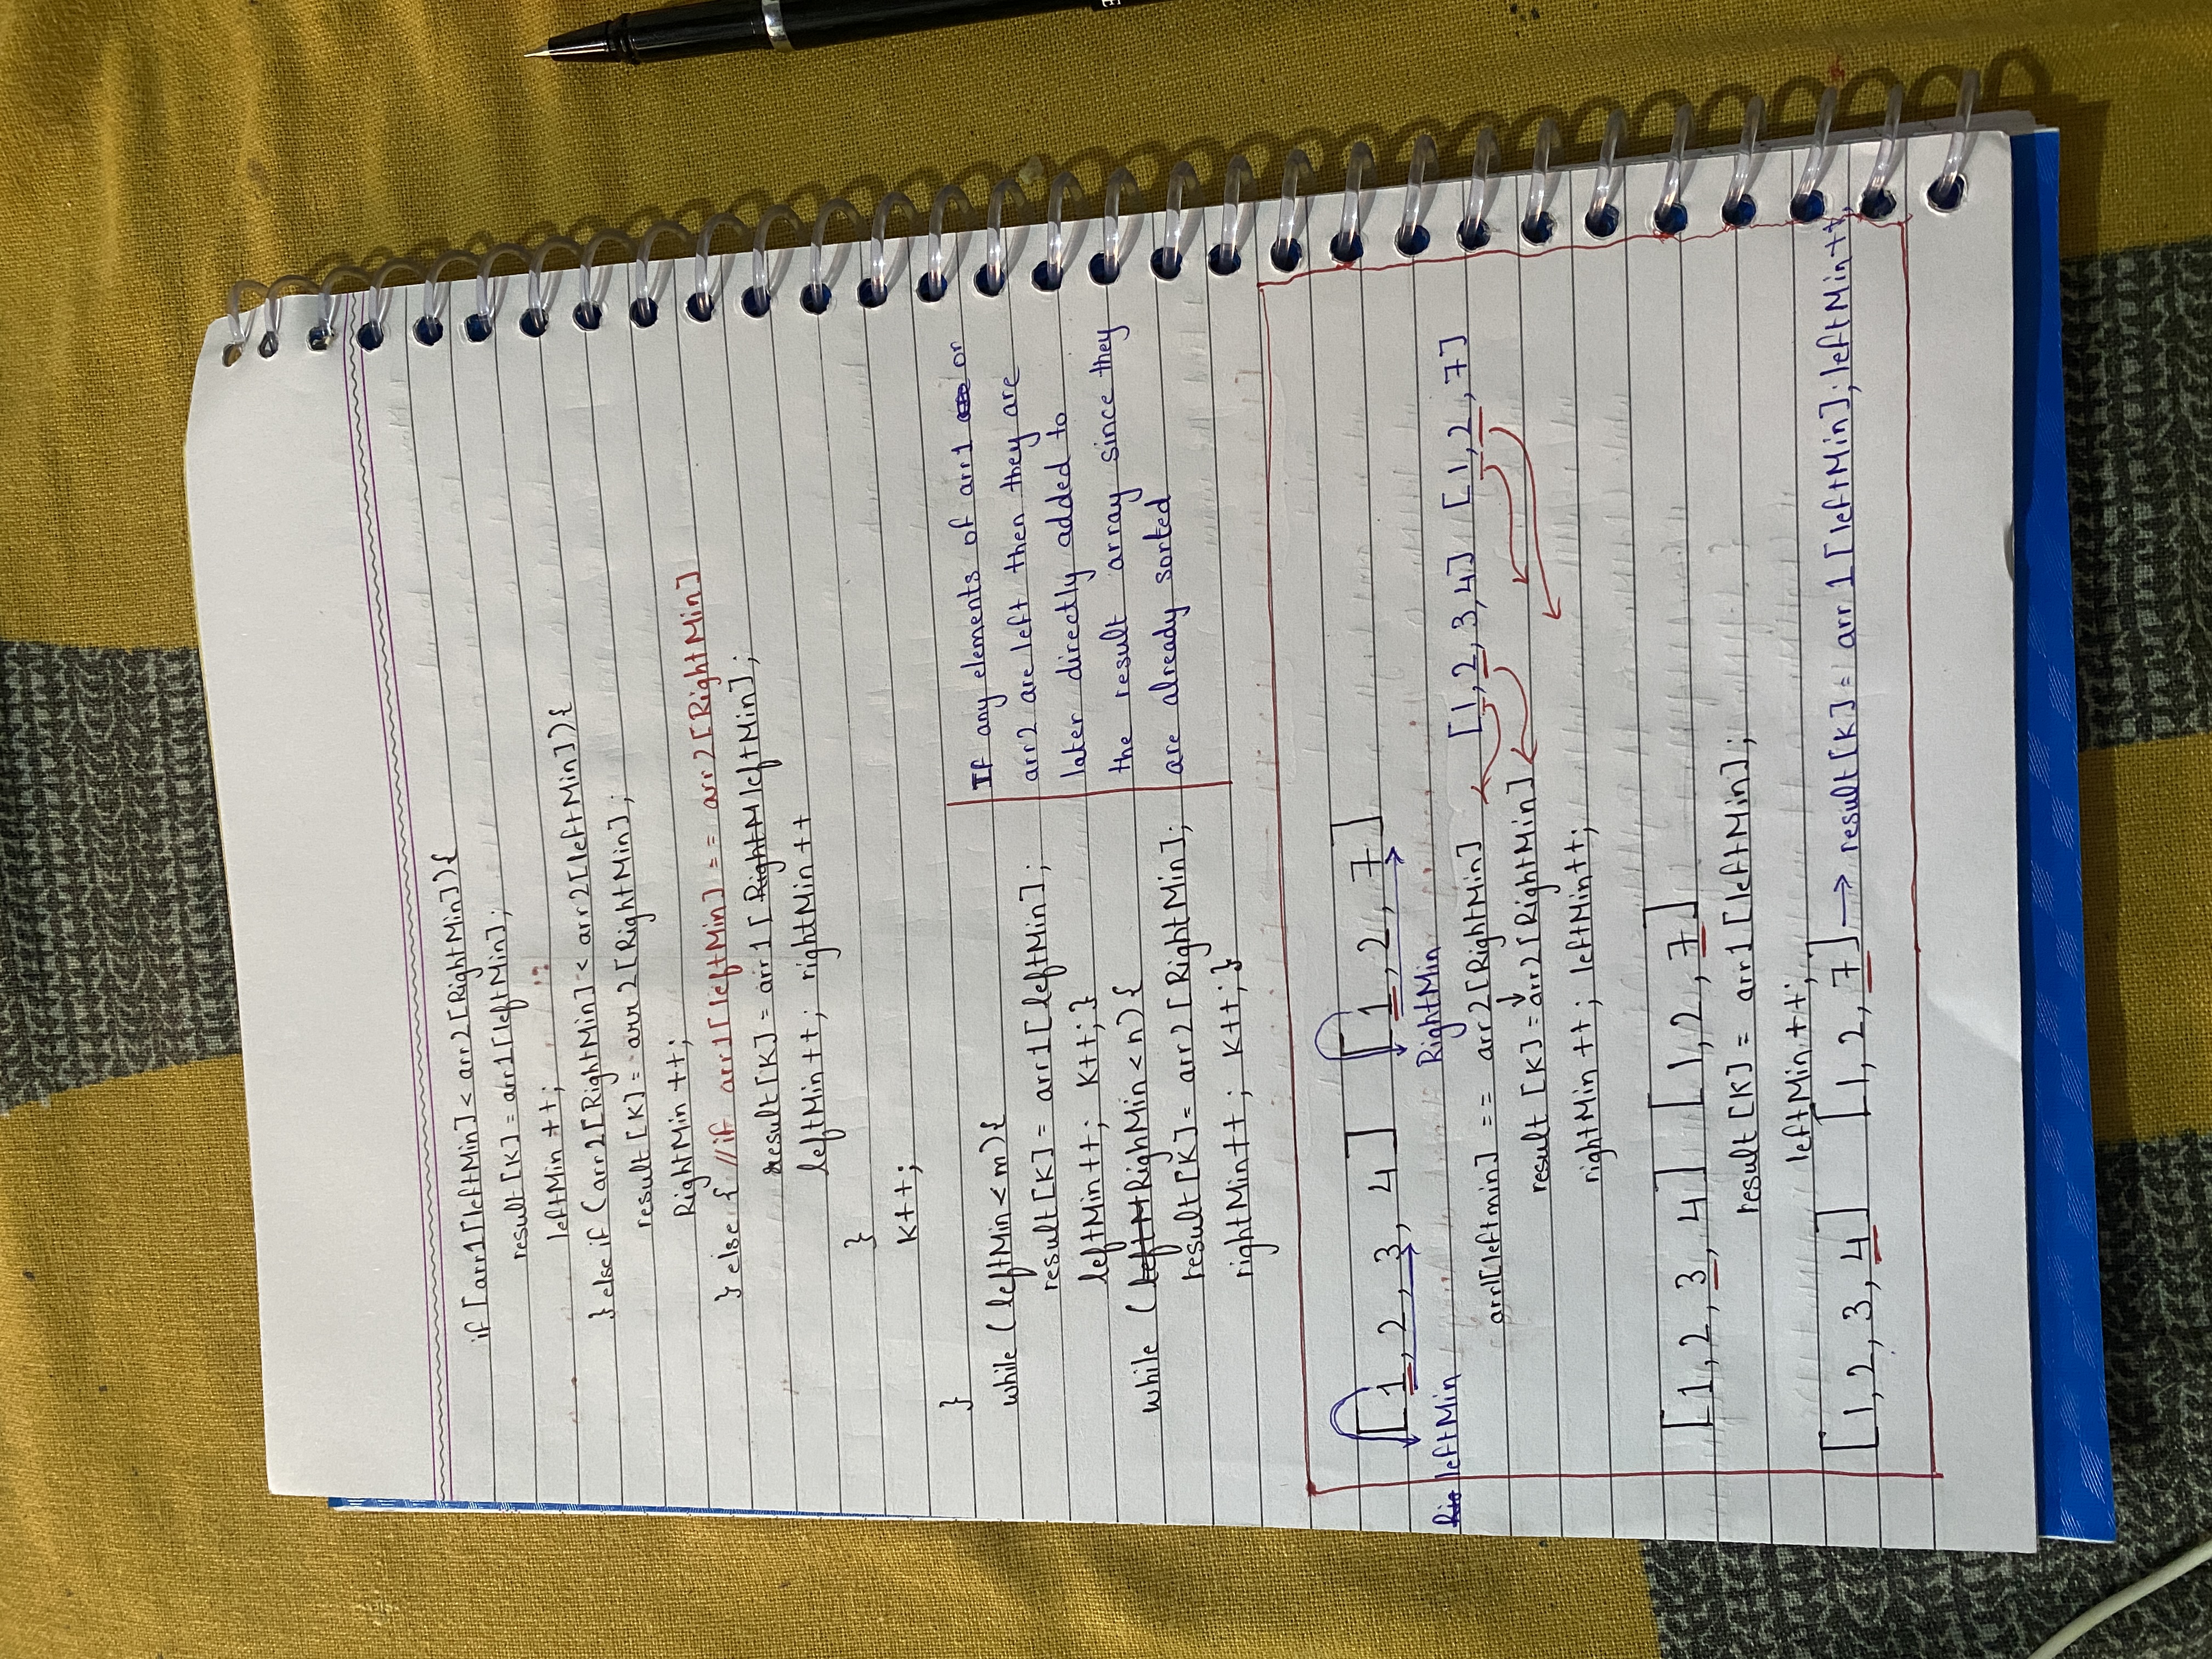 if [arr1[leftMin] < arr2[RightMin]){
result[K] = arr1[leftMin];
leftMin ++;
} else if (arr2[RightMin] < arr2[leftMin]){
result[K] = arr2[RightMin];
RightMin ++;
} else { //if arr1[leftMin] == arr2[RightMin]
result[K] = arr1[RightM leftMin];
leftMin++; rightMin ++
}
K++;
}
while (leftMin < m){
result[K] = arr1[leftMin];
leftMin++; K++; }
while (leftM RighMin < n){
result[K] = arr2[RightMin];
rightMin++; K++; }
If any elements of arr1 or
arr2 are left then they are
later directly added to
the result array since they
are already sorted
[1, 2, 3, 4] [1, 2, 7]
Rig leftMin RightMin
arr1[leftmin] == arr2[RightMin] [1, 2, 3, 4] [1, 2, 7]
result [K] = arr2[RightMin]
rightMin ++; leftMin++;
[1, 2, 3, 4] [1, 2, 7]
result [K] = arr1[leftMin];
leftMin ++;
[1, 2, 3, 4] [1, 2, 7] → result[K] = arr1[leftMin]; leftMin++;